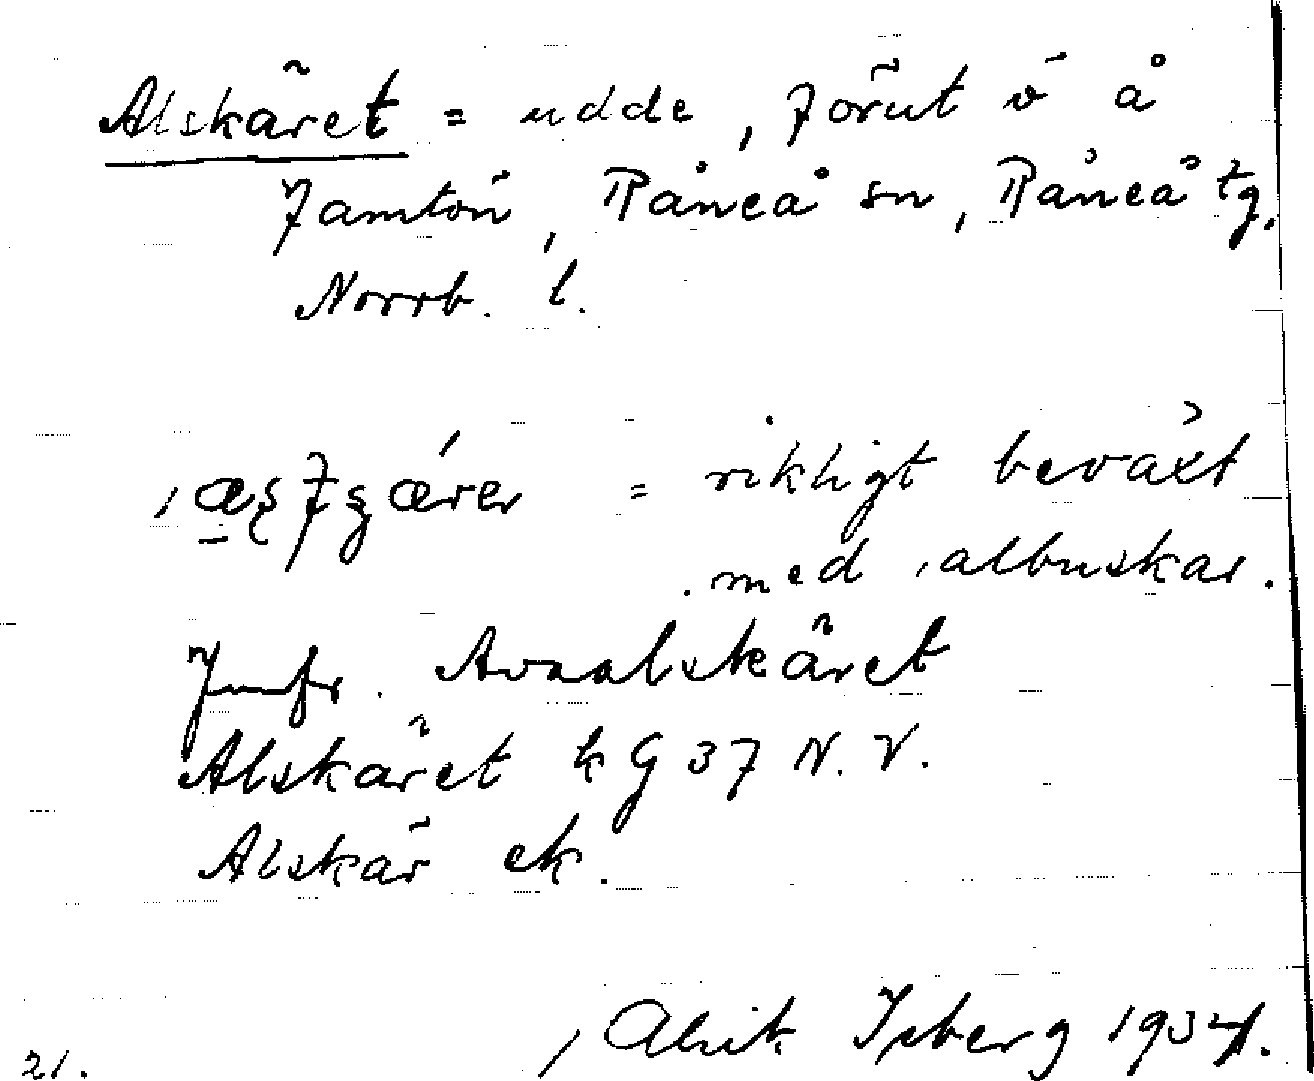 Alskäret = udde, förut ö å
Jämtön, Råneå sn, Råneå tg,
Norrb. l.
= rikligt beväxt
med albuskar.
Jmfr. Avaalskäret
Alskäret kG 37 N. V.
Alskär ek.
Alrik Isberg 1934.
21.